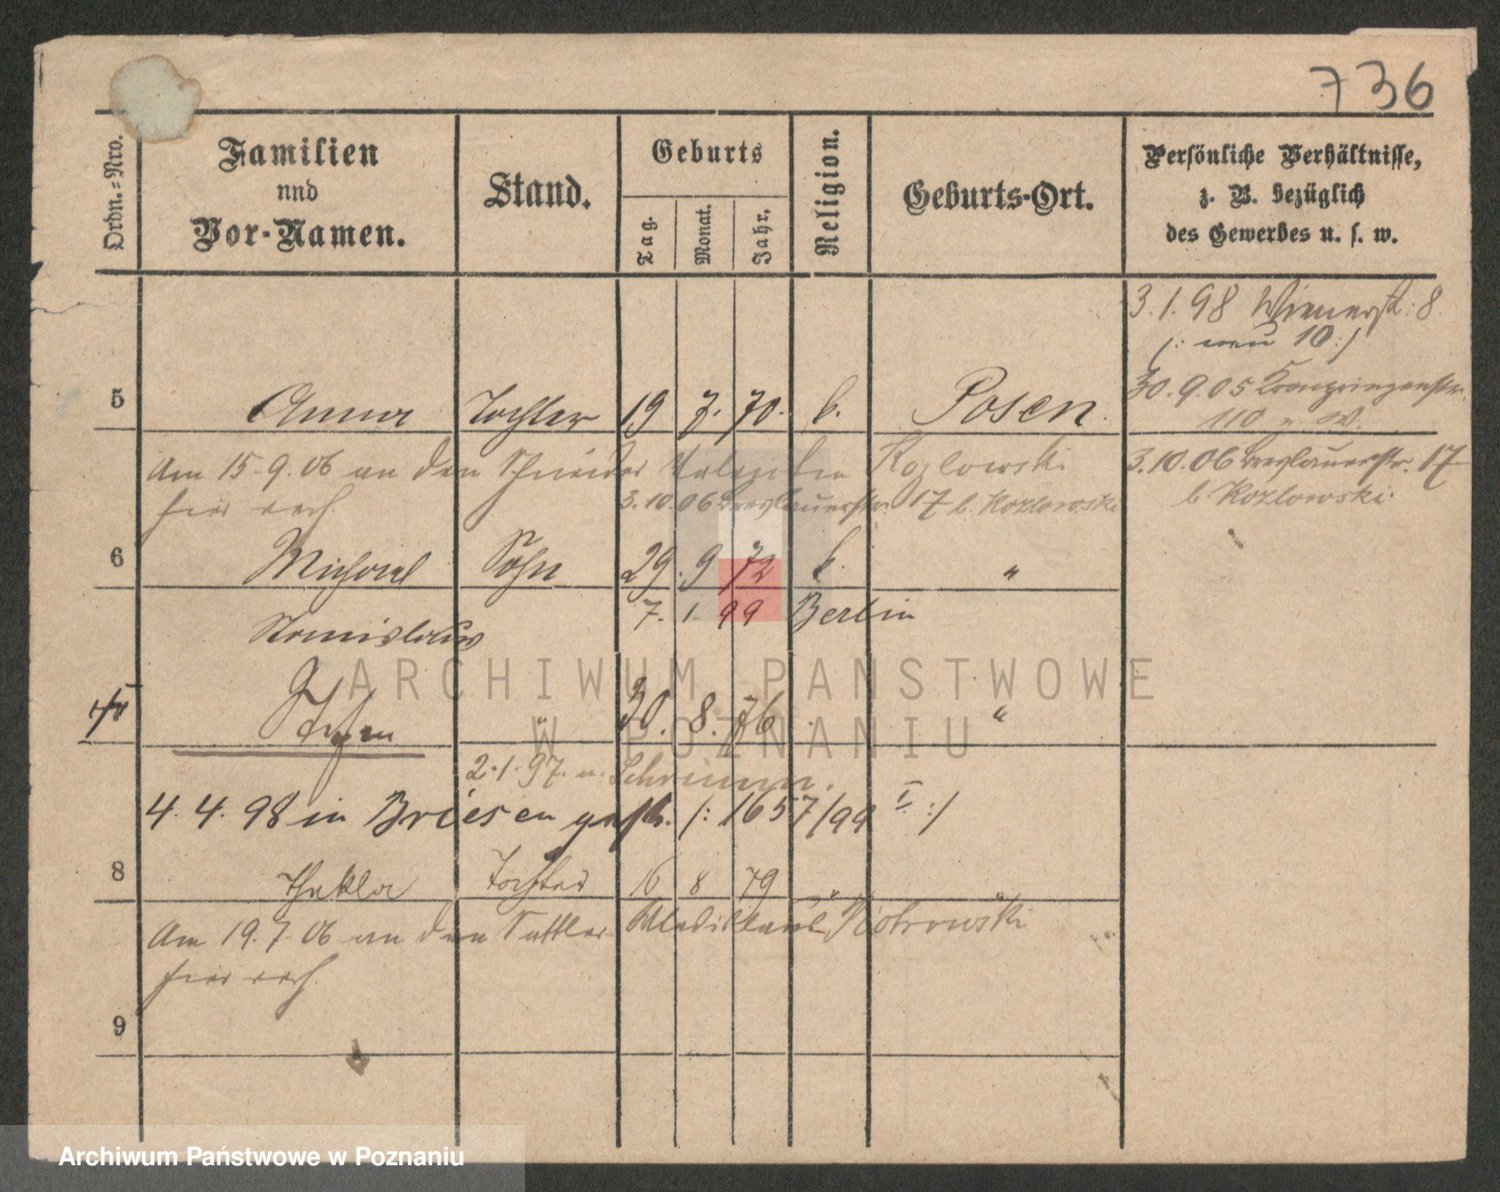 736
Ordn.-Nro.
Familien
und
Vor-Namen.
Stand.
Geburts
Tag.
Monat.
Jahr.
Religion.
Geburts-Ort.
Persönliche Verhältnisse,
z. B. bezüglich
des Gewerbes u. s. w.
3.1.98 Wienerstr. 8.
(: neu 10 :)
30.9.05 Kronprinzenstr.
110
5 Anna Tochter 19 7. 70. k. Posen.
Am 15.9.06 an den Schneider Kozlowski
3.10.06 Breslauerstr. 17
b. Kozlowski.
hier verh. 3.10.06 Breslauerstr. 17 b. Kozlowski
6 Michael Sohn 29. 9 72 k. "
7. 1. 99 Berlin
Stanislaus
Stefan " 30. 8. 76 "
2.1.97. n. Schrimm.
4.4.98 in Briesen gest. /: 1657/99 I :/
8 Thekla Tochter 16 8 79 " "
Am 19.7.06 an den Sattler Wladislaus Piotrowski
hier verh.
9
ARCHIWUM PAŃSTWOWE
W POZNANIU
Archiwum Państwowe w Poznaniu